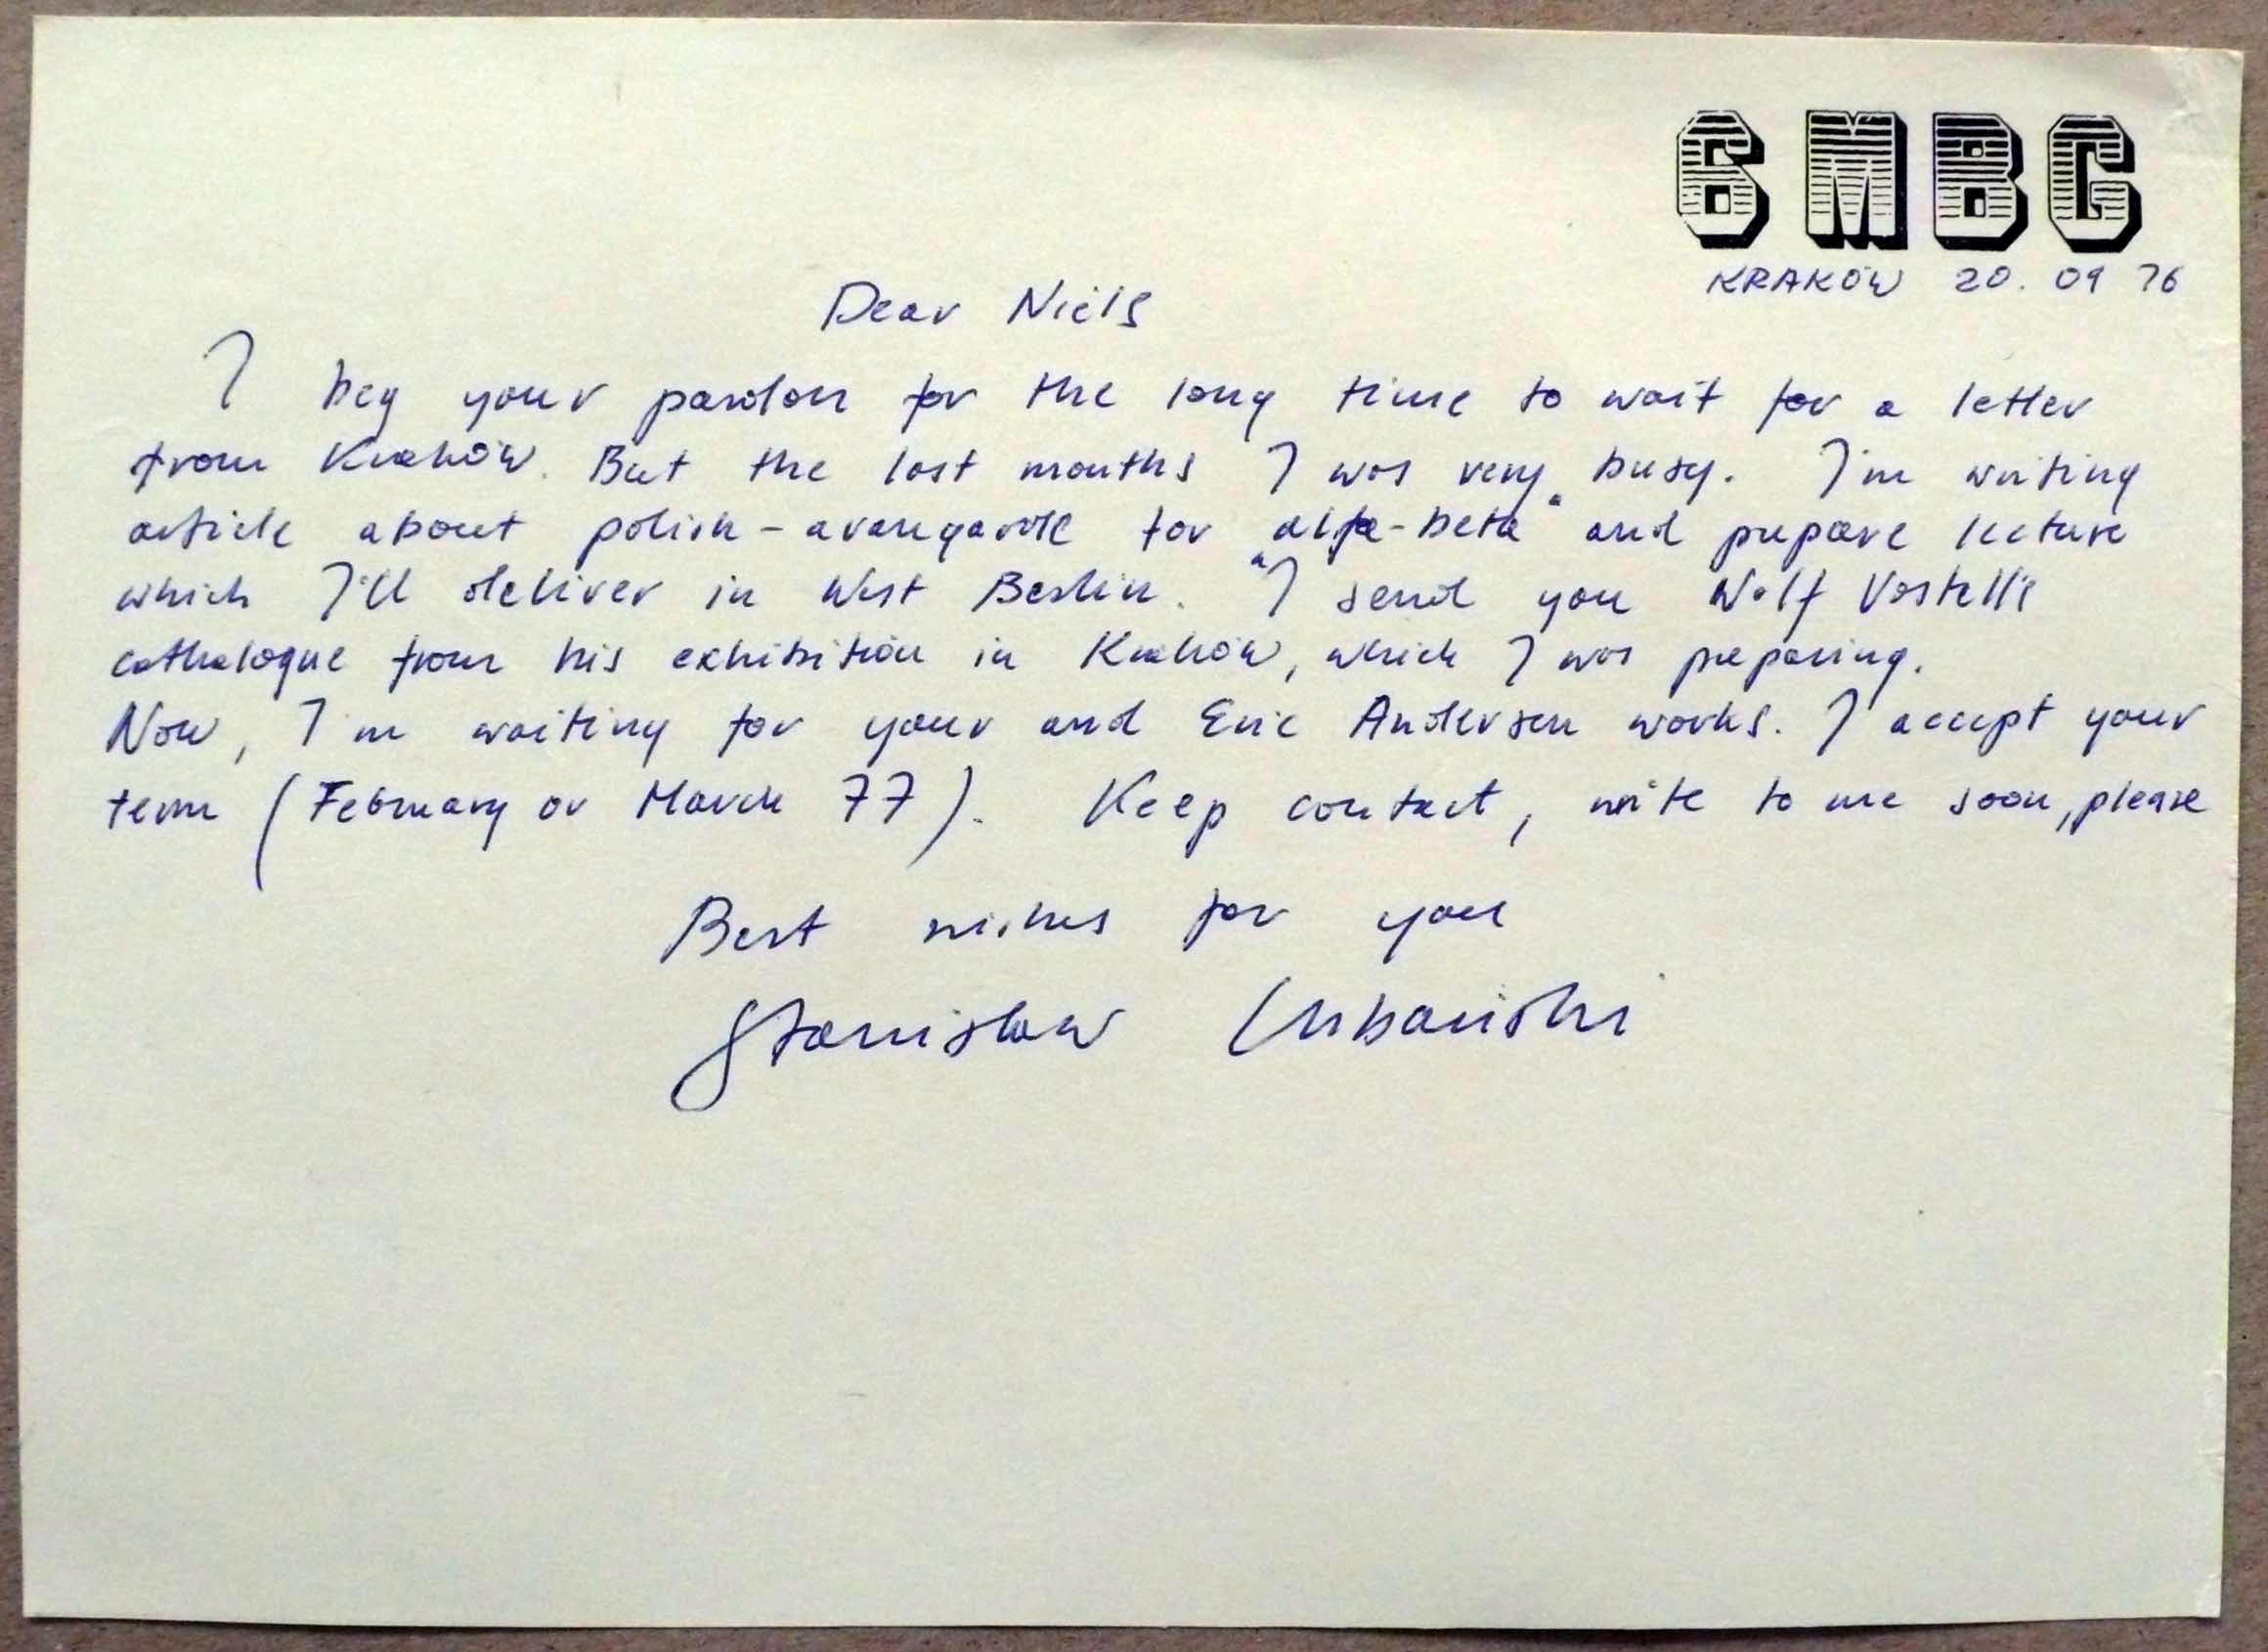 6 MBG
KRAKÓW 20. 09 76
Dear Niels
I beg your pardon for the long time to wait for a letter
from Kraków. But the last months I was very busy. I'm writing
article about polish-avangarde for "alfa-beta" and prepare lecture
which I'll deliver in West Berlin. I send you Wolf Vostell's
cathalogue from his exhibition in Kraków, which I was preparing.
Now, I'm waiting for your and Eric Andersen works. I accept your
term (February or March 77). Keep contact, write to me soon, please
Best wishes for you
Stanislaw Urbański